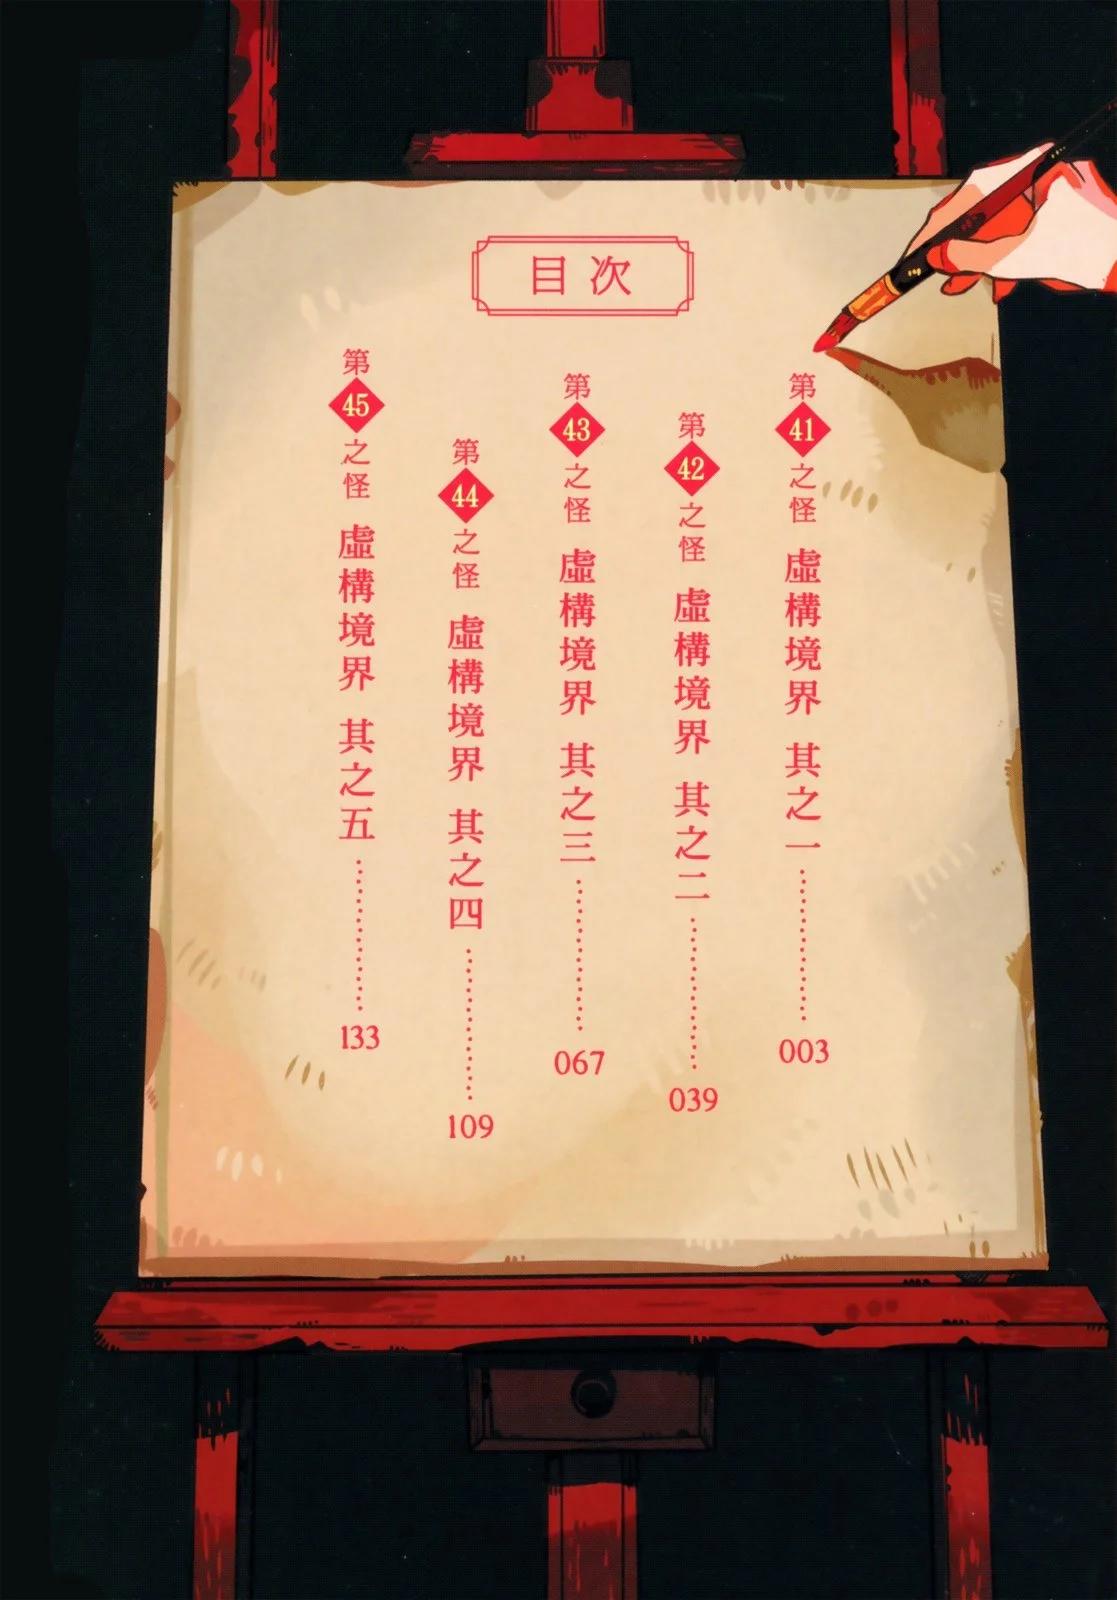 目次
第41之怪 虛構境界 其之一………003
第42之怪 虛構境界 其之二………039
第43之怪 虛構境界 其之三………067
第44之怪 虛構境界 其之四………109
第45之怪 虛構境界 其之五………133